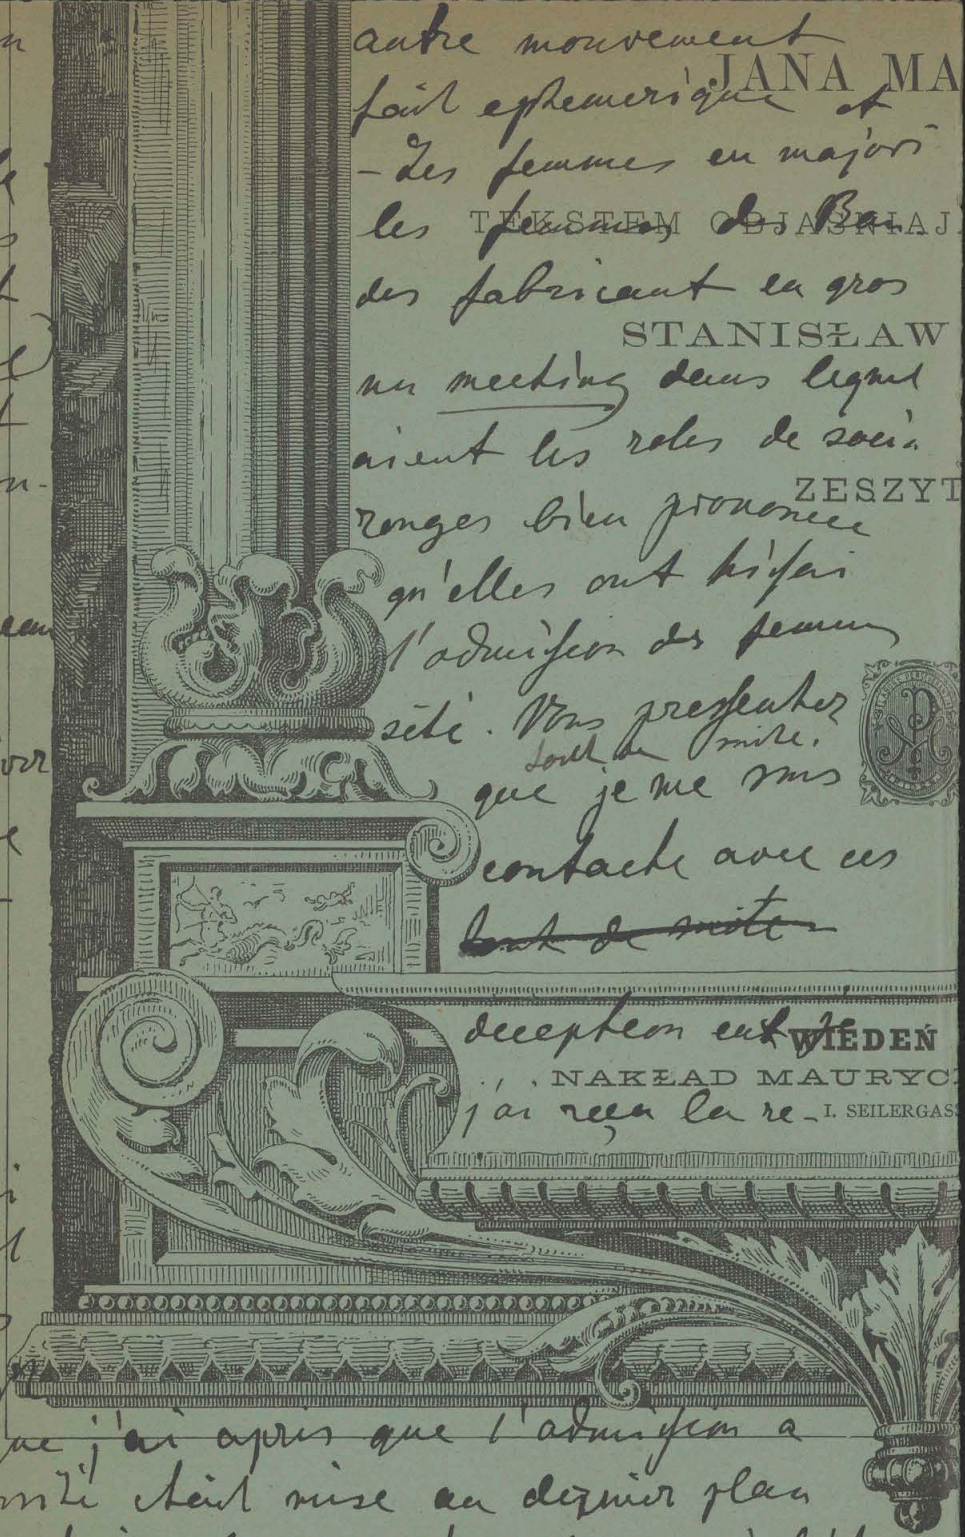 autre mouvement
JANA MA
fait ephemerique et
- Les femmes en majori
TEKSTEM OBJAŚNIAJ
les femmes des Ba
des fabricant en gros
STANISŁAW
nu meeting dans lequel
aient les roles de socia
ZESZYT
ronges bien prononcee
qu'elles ont
l'admission des femmes
sété. Vous pressentez
tout de suite.
que je me suis
contacte avec ces
tout de suite
deception est
WIEDEŃ
NAKŁAD MAURYC
j'ai reçu la re-
I. SEILERGASS
que j'ai apris que l'admission a
était mise au dernier plan